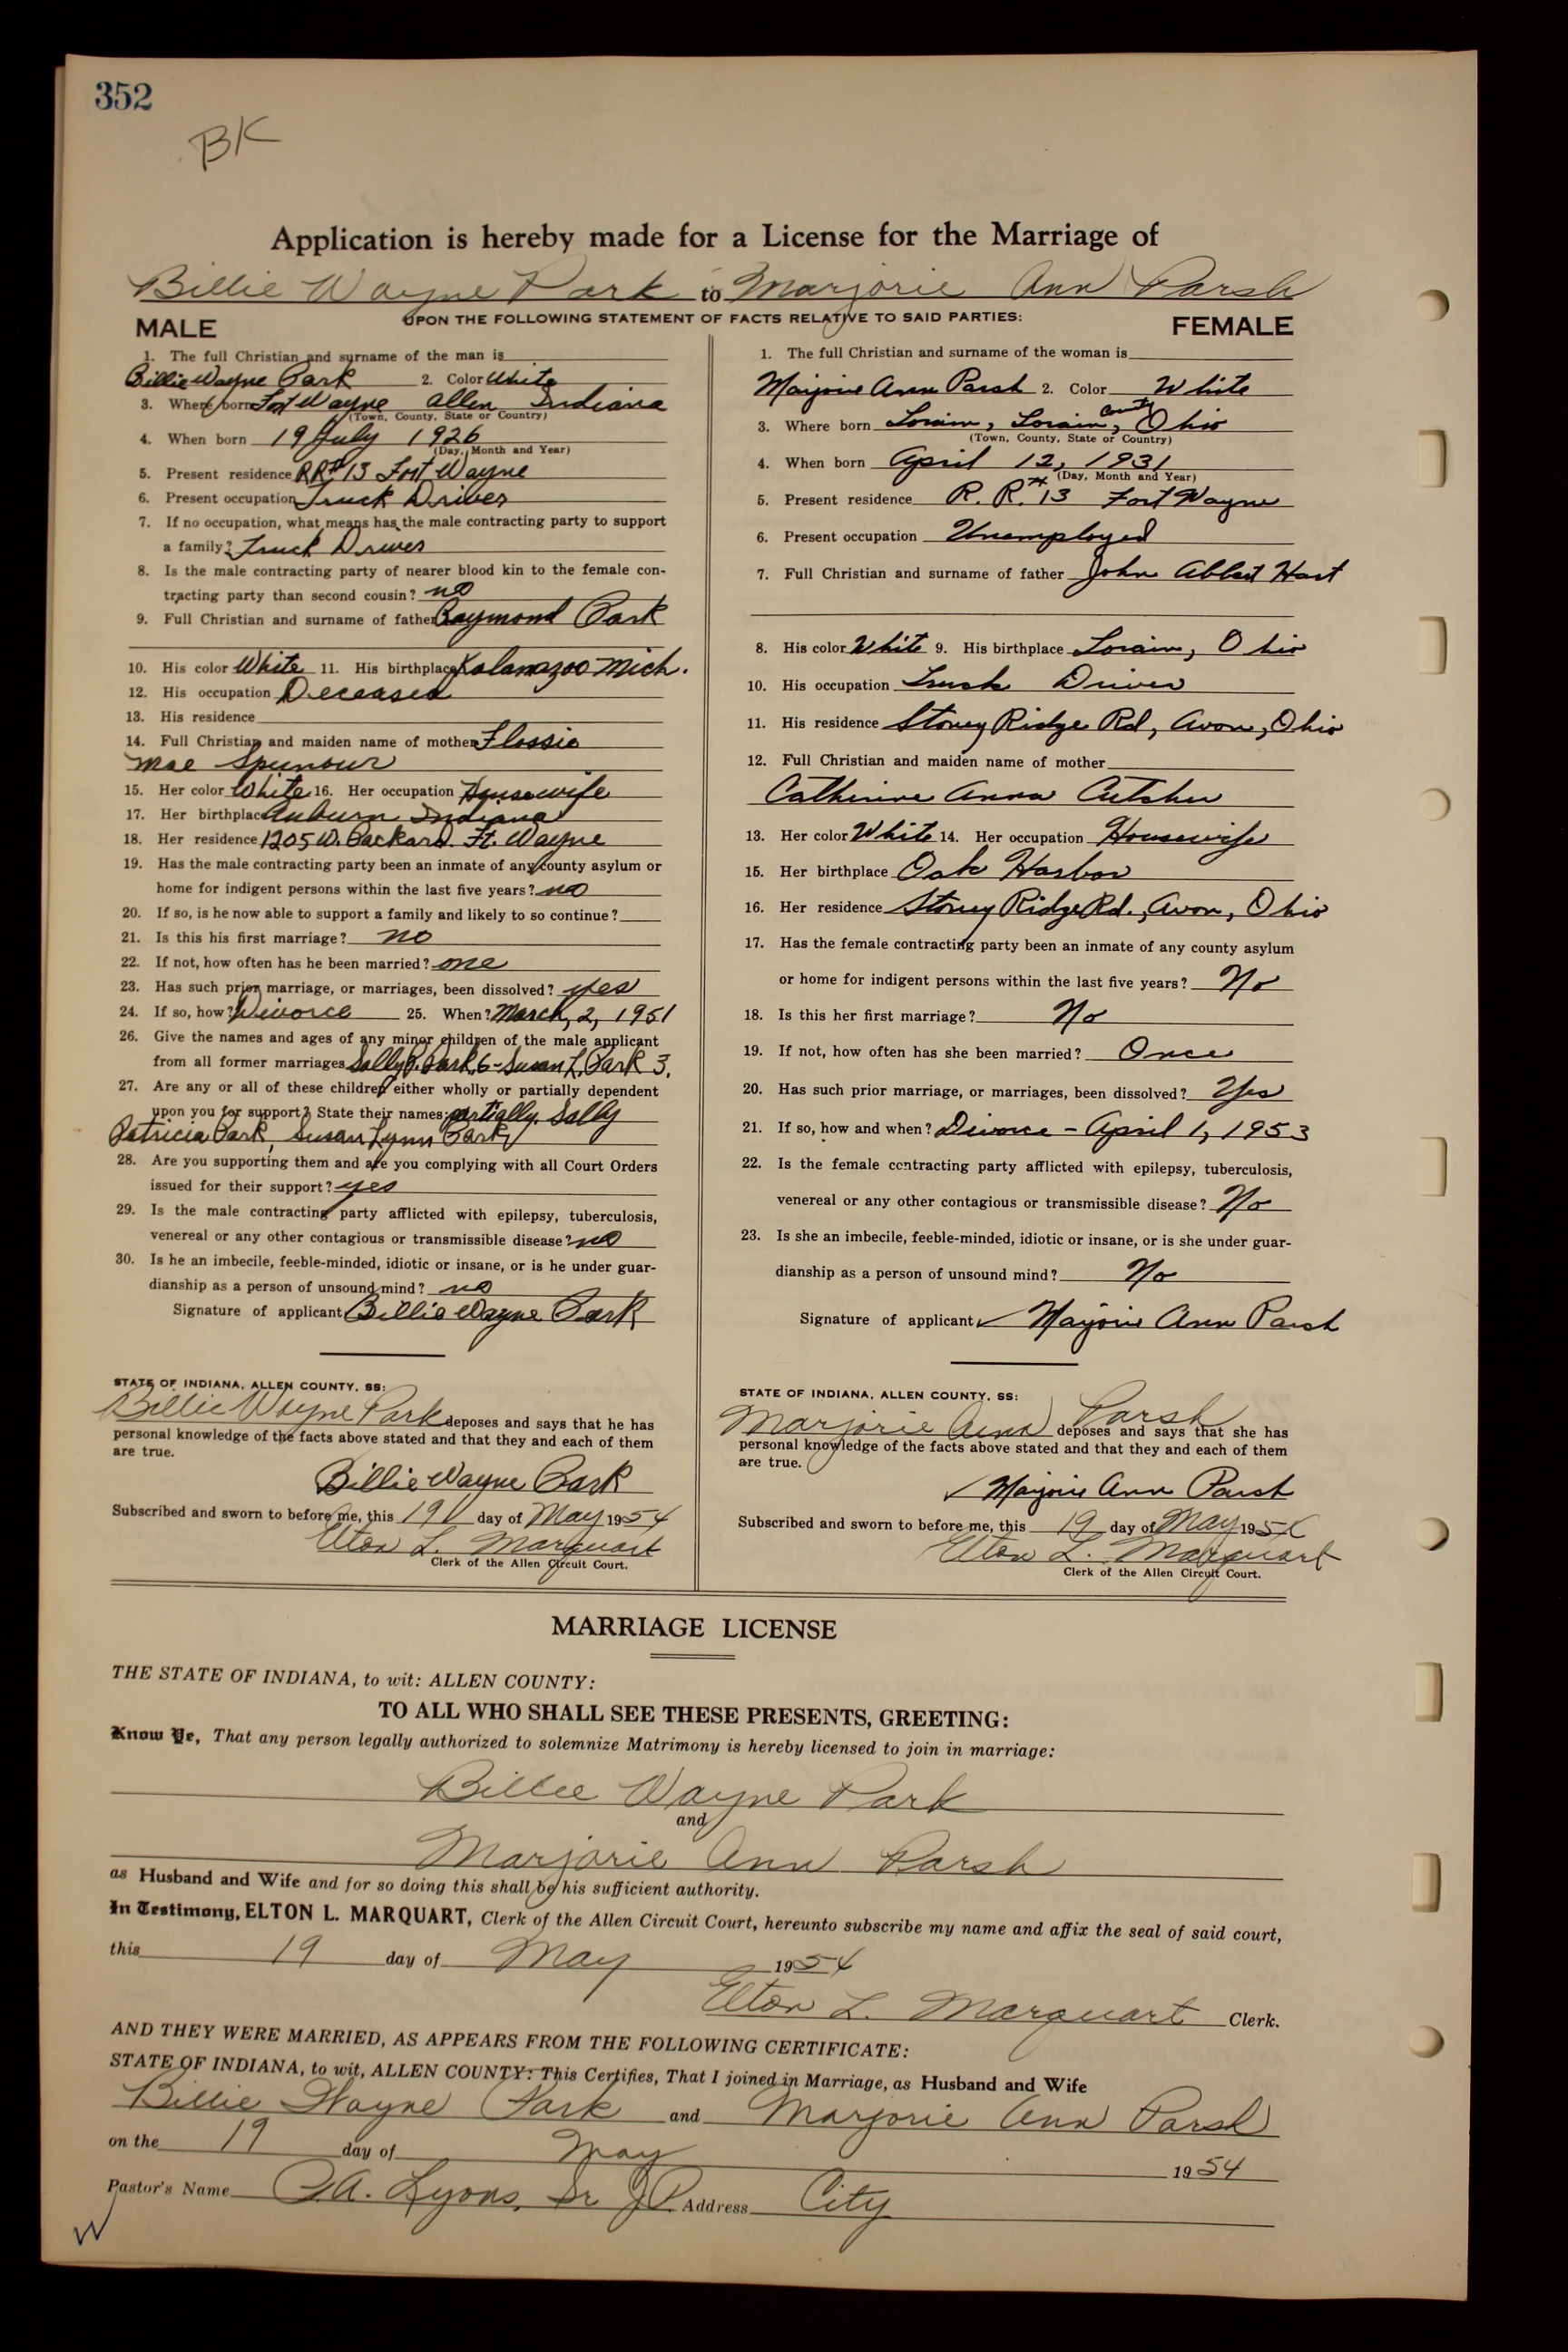 352
BK
Application is hereby made for a License for the Marriage of
Billie Wayne Park to Marjorie Ann Parsh
UPON THE FOLLOWING STATEMENT OF FACTS RELATIVE TO SAID PARTIES:
MALE
1. The full Christian and surname of the man is
Billie Wayne Park 2. Color White
3. Where born Fort Wayne Allen Indiana
(Town, County, State or Country)
4. When born 19 July 1926
(Day, Month and Year)
5. Present residence RR# 13 Fort Wayne
6. Present occupation Truck Driver
7. If no occupation, what means has the male contracting party to support
a family? Truck Driver
8. Is the male contracting party of nearer blood kin to the female con-
tracting party than second cousin? no
9. Full Christian and surname of father Raymond Park
10. His color White 11. His birthplace Kalamazoo Mich.
12. His occupation Deceased
13. His residence
14. Full Christian and maiden name of mother Flossie
Mae
15. Her color White 16. Her occupation Housewife
17. Her birthplace Auburn Indiana
18. Her residence 1205 W. Packard Ft. Wayne
19. Has the male contracting party been an inmate of any county asylum or
home for indigent persons within the last five years? no
20. If so, is he now able to support a family and likely to so continue?
21. Is this his first marriage? no
22. If not, how often has he been married? one
23. Has such prior marriage, or marriages, been dissolved? yes
24. If so, how? Divorce 25. When? March, 2, 1951
26. Give the names and ages of any minor children of the male applicant
from all former marriages Sally P. Park 6 - Susan L. Park 3.
27. Are any or all of these children either wholly or partially dependent
upon you for support? State their names: partially. Sally
Patricia Park, Susan Lynn Park
28. Are you supporting them and are you complying with all Court Orders
issued for their support? yes
29. Is the male contracting party afflicted with epilepsy, tuberculosis,
venereal or any other contagious or transmissible disease? no
30. Is he an imbecile, feeble-minded, idiotic or insane, or is he under guar-
dianship as a person of unsound mind? no
Signature of applicant Billie Wayne Park
STATE OF INDIANA, ALLEN COUNTY, SS:
Billie Wayne Park deposes and says that he has
personal knowledge of the facts above stated and that they and each of them
are true.
Billie Wayne Park
Subscribed and sworn to before me, this 19 day of May 1954
Elton L. Marquart
Clerk of the Allen Circuit Court.
FEMALE
1. The full Christian and surname of the woman is
Marjorie Ann Parsh 2. Color White
3. Where born Lorain, Lorain County, Ohio
(Town, County, State or Country)
4. When born April 12, 1931
(Day, Month and Year)
5. Present residence R. R. # 13 Fort Wayne
6. Present occupation Unemployed
7. Full Christian and surname of father John Abbot Hart
8. His color White 9. His birthplace Lorain, Ohio
10. His occupation Truck Driver
11. His residence Stoney Ridge Rd, Avon, Ohio
12. Full Christian and maiden name of mother
Catherine Anna
13. Her color White 14. Her occupation Housewife
15. Her birthplace Oak Harbor
16. Her residence Stoney Ridge Rd., Avon, Ohio
17. Has the female contracting party been an inmate of any county asylum
or home for indigent persons within the last five years? No
18. Is this her first marriage? No
19. If not, how often has she been married? Once
20. Has such prior marriage, or marriages, been dissolved? Yes
21. If so, how and when? Divorce - April 1, 1953
22. Is the female contracting party afflicted with epilepsy, tuberculosis,
venereal or any other contagious or transmissible disease? No
23. Is she an imbecile, feeble-minded, idiotic or insane, or is she under guar-
dianship as a person of unsound mind? No
Signature of applicant ✓ Marjorie Ann Parsh
STATE OF INDIANA, ALLEN COUNTY, SS:
Marjorie Ann Parsh deposes and says that she has
personal knowledge of the facts above stated and that they and each of them
are true.
✓ Marjorie Ann Parsh
Subscribed and sworn to before me, this 19 day of May 1954
Elton L. Marquart
Clerk of the Allen Circuit Court.
MARRIAGE LICENSE
THE STATE OF INDIANA, to wit: ALLEN COUNTY:
TO ALL WHO SHALL SEE THESE PRESENTS, GREETING:
Know Ye, That any person legally authorized to solemnize Matrimony is hereby licensed to join in marriage:
Billie Wayne Park
and
Marjorie Ann Parsh
as Husband and Wife and for so doing this shall be his sufficient authority.
In Testimony, ELTON L. MARQUART, Clerk of the Allen Circuit Court, hereunto subscribe my name and affix the seal of said court,
this 19 day of May 1954
Elton L. Marquart Clerk.
AND THEY WERE MARRIED, AS APPEARS FROM THE FOLLOWING CERTIFICATE:
STATE OF INDIANA, to wit, ALLEN COUNTY: This Certifies, That I joined in Marriage, as Husband and Wife
Billie Wayne Park and Marjorie Ann Parsh
on the 19 day of May 1954
Pastor's Name P.A. Lyons, Sr JP Address City
W